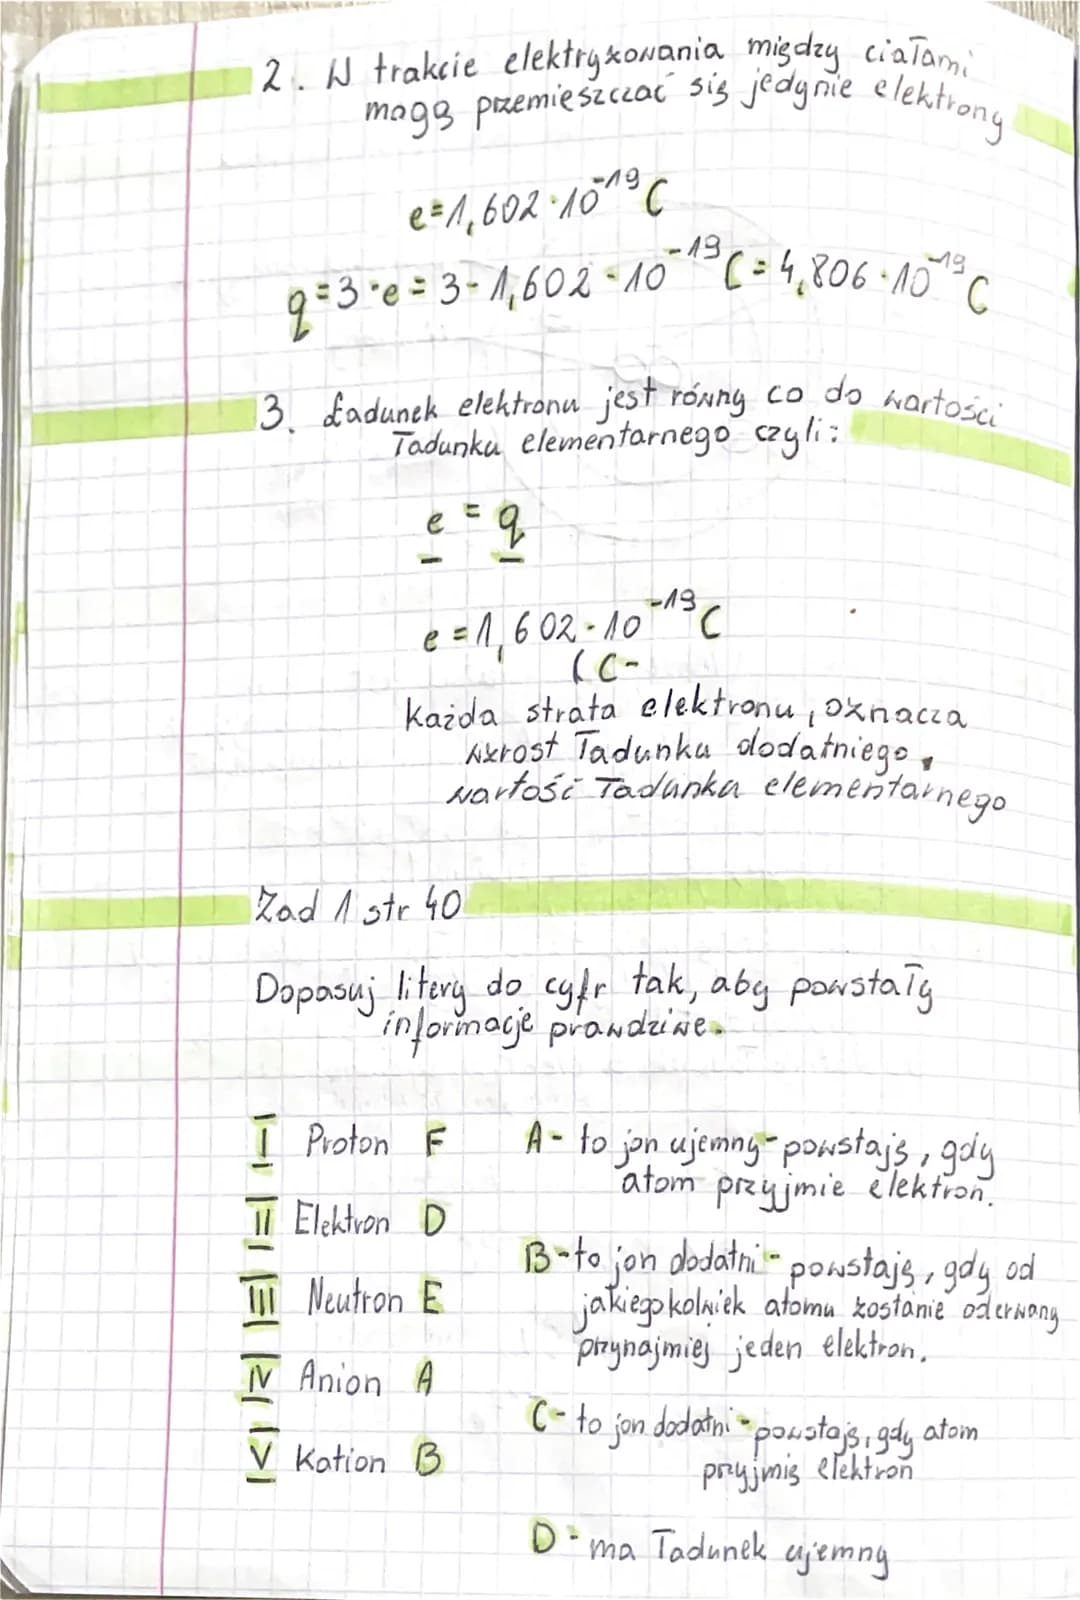 2. W trakcie elektryzowania między ciałami
mogą przemieszczać się jedynie elektrony
e=1,602·10⁻¹⁹ C
q=3·e=3·1,602·10⁻¹⁹ C=4,806·10⁻¹⁹ C
3. Ładunek elektronu jest równy co do wartości
ładunku elementarnego czyli:
e = q
e =1,602·10⁻¹⁹ C
( C-
Każda strata elektronu, oznacza
wzrost ładunku dodatniego,
wartość ładunku elementarnego
Zad 1 str 40
Dopasuj litery do cyfr tak, aby powstały
informacje prawdziwe.
I Proton F
II Elektron D
III Neutron E
IV Anion A
V Kation B
A- to jon ujemny-powstaję, gdy
atom przyjmie elektron.
B-to jon dodatni- powstaję, gdy od
jakiegokolwiek atomu zostanie oderwany
przynajmiej jeden elektron.
C- to jon dodatni-powstaję, gdy atom
przyjmię elektron
D- ma ładunek ujemny